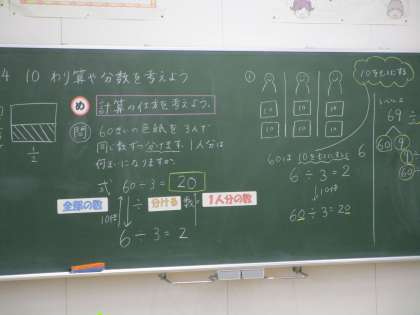 4 10 わり算や分数を考えよう
め 計算の仕方を考えよう。
問 60まいの色紙を3人で
同じ数ずつ分けます。1人分は
何まいになりますか。
式 60÷3=20
全部の数 ÷ 分ける数 = 1人分の数
10倍
6÷3=2
1/2
①
10 10 10
10 10 10
60は10をもとにすると 6
6÷3=2
↓10倍
60÷3=20
10をもとにする
69÷
60 9